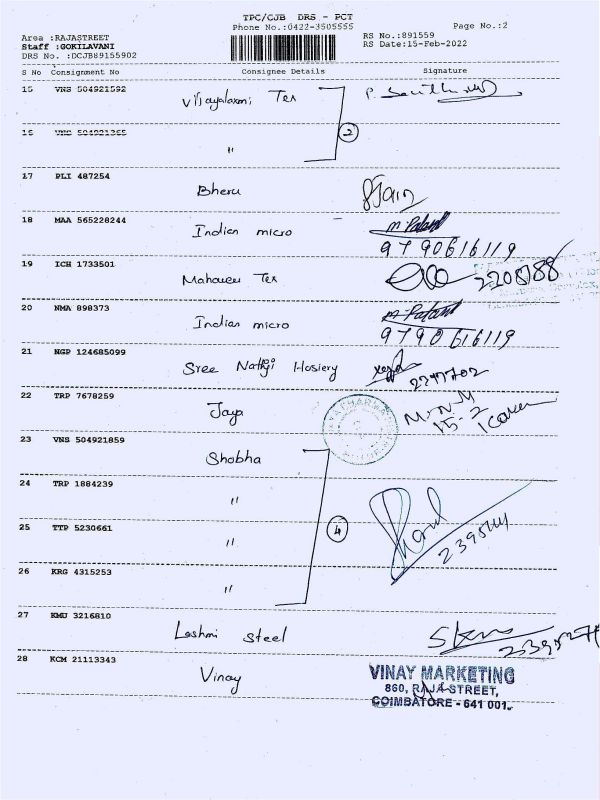 TPC/CJB DRS - PCT
Phone No.:0422-3505555
Page No.:2
Area :RAJASTREET
RS No.:891559
Staff :GOKILAVANI
RS Date:15-Feb-2022
DRS No. :DCJB89155902
S No Consignment No Consignee Details Signature
15 VNS 504921592 Vijayalaxmi Tex
16 504921365 "
2
17 PLI 487254 Bheru Jain
18 MAA 565228244 Indian micro
9790616119
19 ICH 1733501 Mahaveer Tex
20 NMA 898373 Indian micro
9790616119
21 NGP 124685099 Sree Hosiery
22 TRP 7678259 Jaya
15-2
23 VNS 504921859 Shobha
24 TRP 1884239 "
4
25 TTP 5230661 "
26 KRG 4315253 "
27 KMU 3216810 Lashmi Steel
28 KCM 21113343 Vinay
VINAY MARKETING
860, RAJA STREET,
COIMBATORE - 641 001.